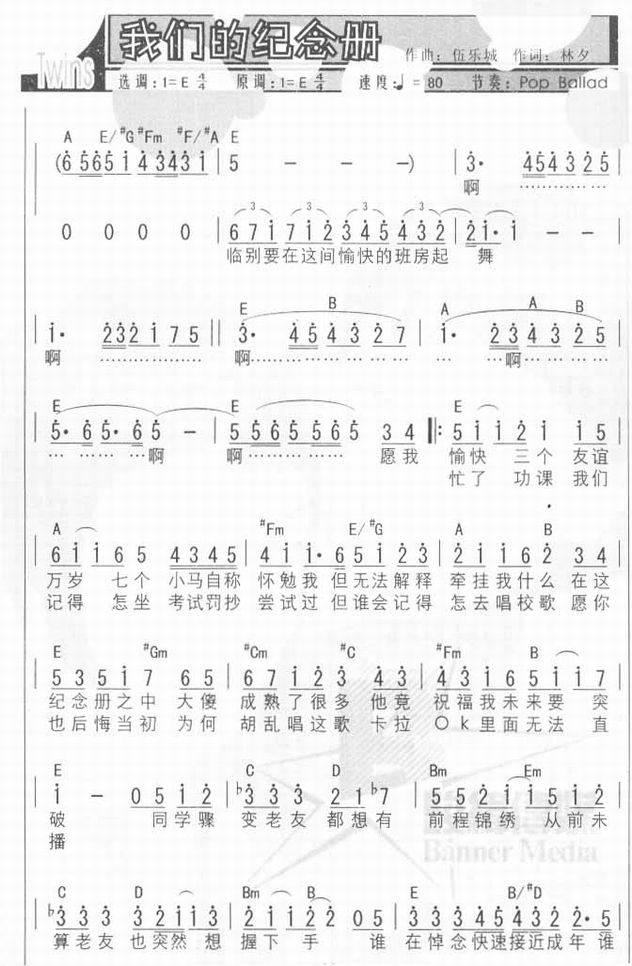 我们的纪念册
Twins
作曲：伍乐城 作词：林夕
选调：1=E 4/4 原调：1=E 4/4 速度：♩=80 节奏：Pop Ballad
A E/#G #Fm #F/#A E
(6 5 6 5 1 4 3 4 3 1 | 5 - - -) | 3· 4 5 4 3 2 5
啊 …………
0 0 0 0 | 6 7 1 7 1 2 3 4 5 4 3 2 | 2 1· 1 - -
临别要在这间愉快的班房起 舞
E B A A B
| 1· 2 3 2 1 7 5 || 3· 4 5 4 3 2 7 | 1· 2 3 4 3 2 5
啊 ………… 啊………… 啊…………
E E E
| 5· 6 5· 6 5 - | 5 5 6 5 5 6 5 3 4 ||: 5 1 1 2 1 1 5
… …… 啊 啊 …… …… 愿我 愉快 三个 友谊
忙了 功课 我们
A #Fm E/#G A B
| 6 1 1 6 5 4 3 4 5 | 4 1 1· 6 5 1 2 3 | 2 1 1 6 2 3 4
万岁 七个 小马自称 怀勉我 但无法解释 牵挂我什么 在这
记得 怎坐 考试罚抄 尝试过 但谁会记得 怎去唱校歌 愿你
E #Gm #Cm #C #Fm B
| 5 3 5 1 7 6 5 | 6 7 1 2 3 4 3 | 4 3 1 6 5 1 1 7
纪念册之中 大傻 成熟了很多 他竟 祝福我未来要 突
也后悔当初 为何 胡乱唱这歌 卡拉 Ok里面无法 直
E C D Bm Em
| 1 - 0 5 1 2 | b3 3 3 2 1 b7 | 5 5 2 1 1 5 1 2
破 同学骤 变老友 都想有 前程锦绣 从前未
播
Banner Media
C D Bm B E B/#D
| b3 3 3 3 2 1 1 3 | 2 1 1 2 2 0 5 | 3 3 3 4 5 4 3 2· 5
算老友 也突然 想 握下 手 谁 在悼念快速接近成年 谁